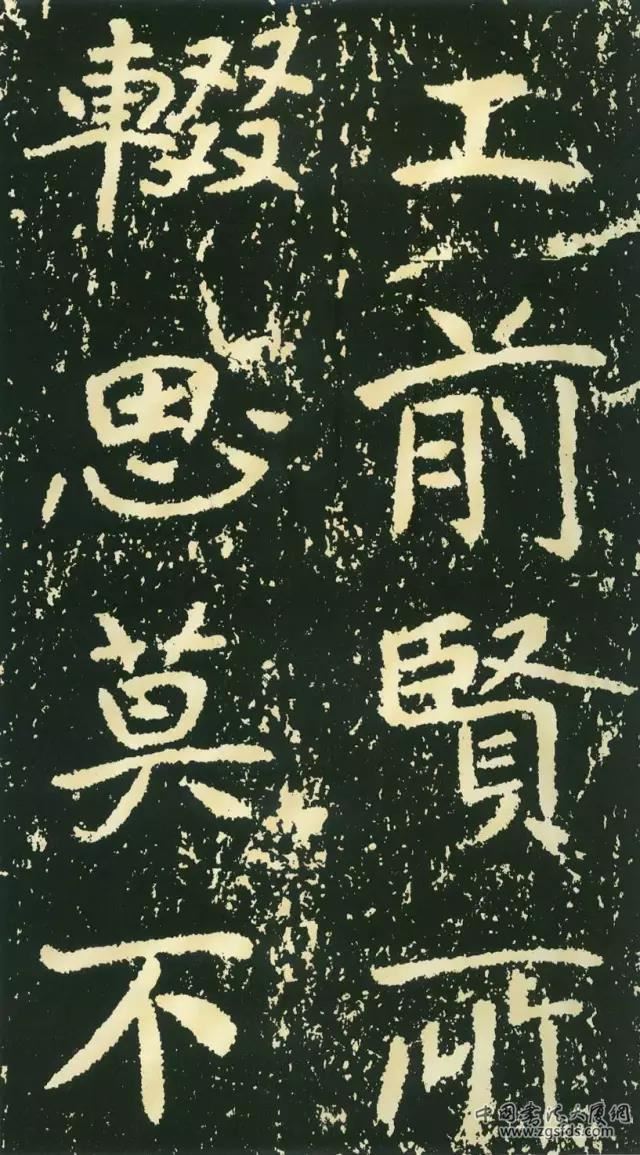 工前賢所
輟思莫不
中国书法大厦网
www.zgsfds.com